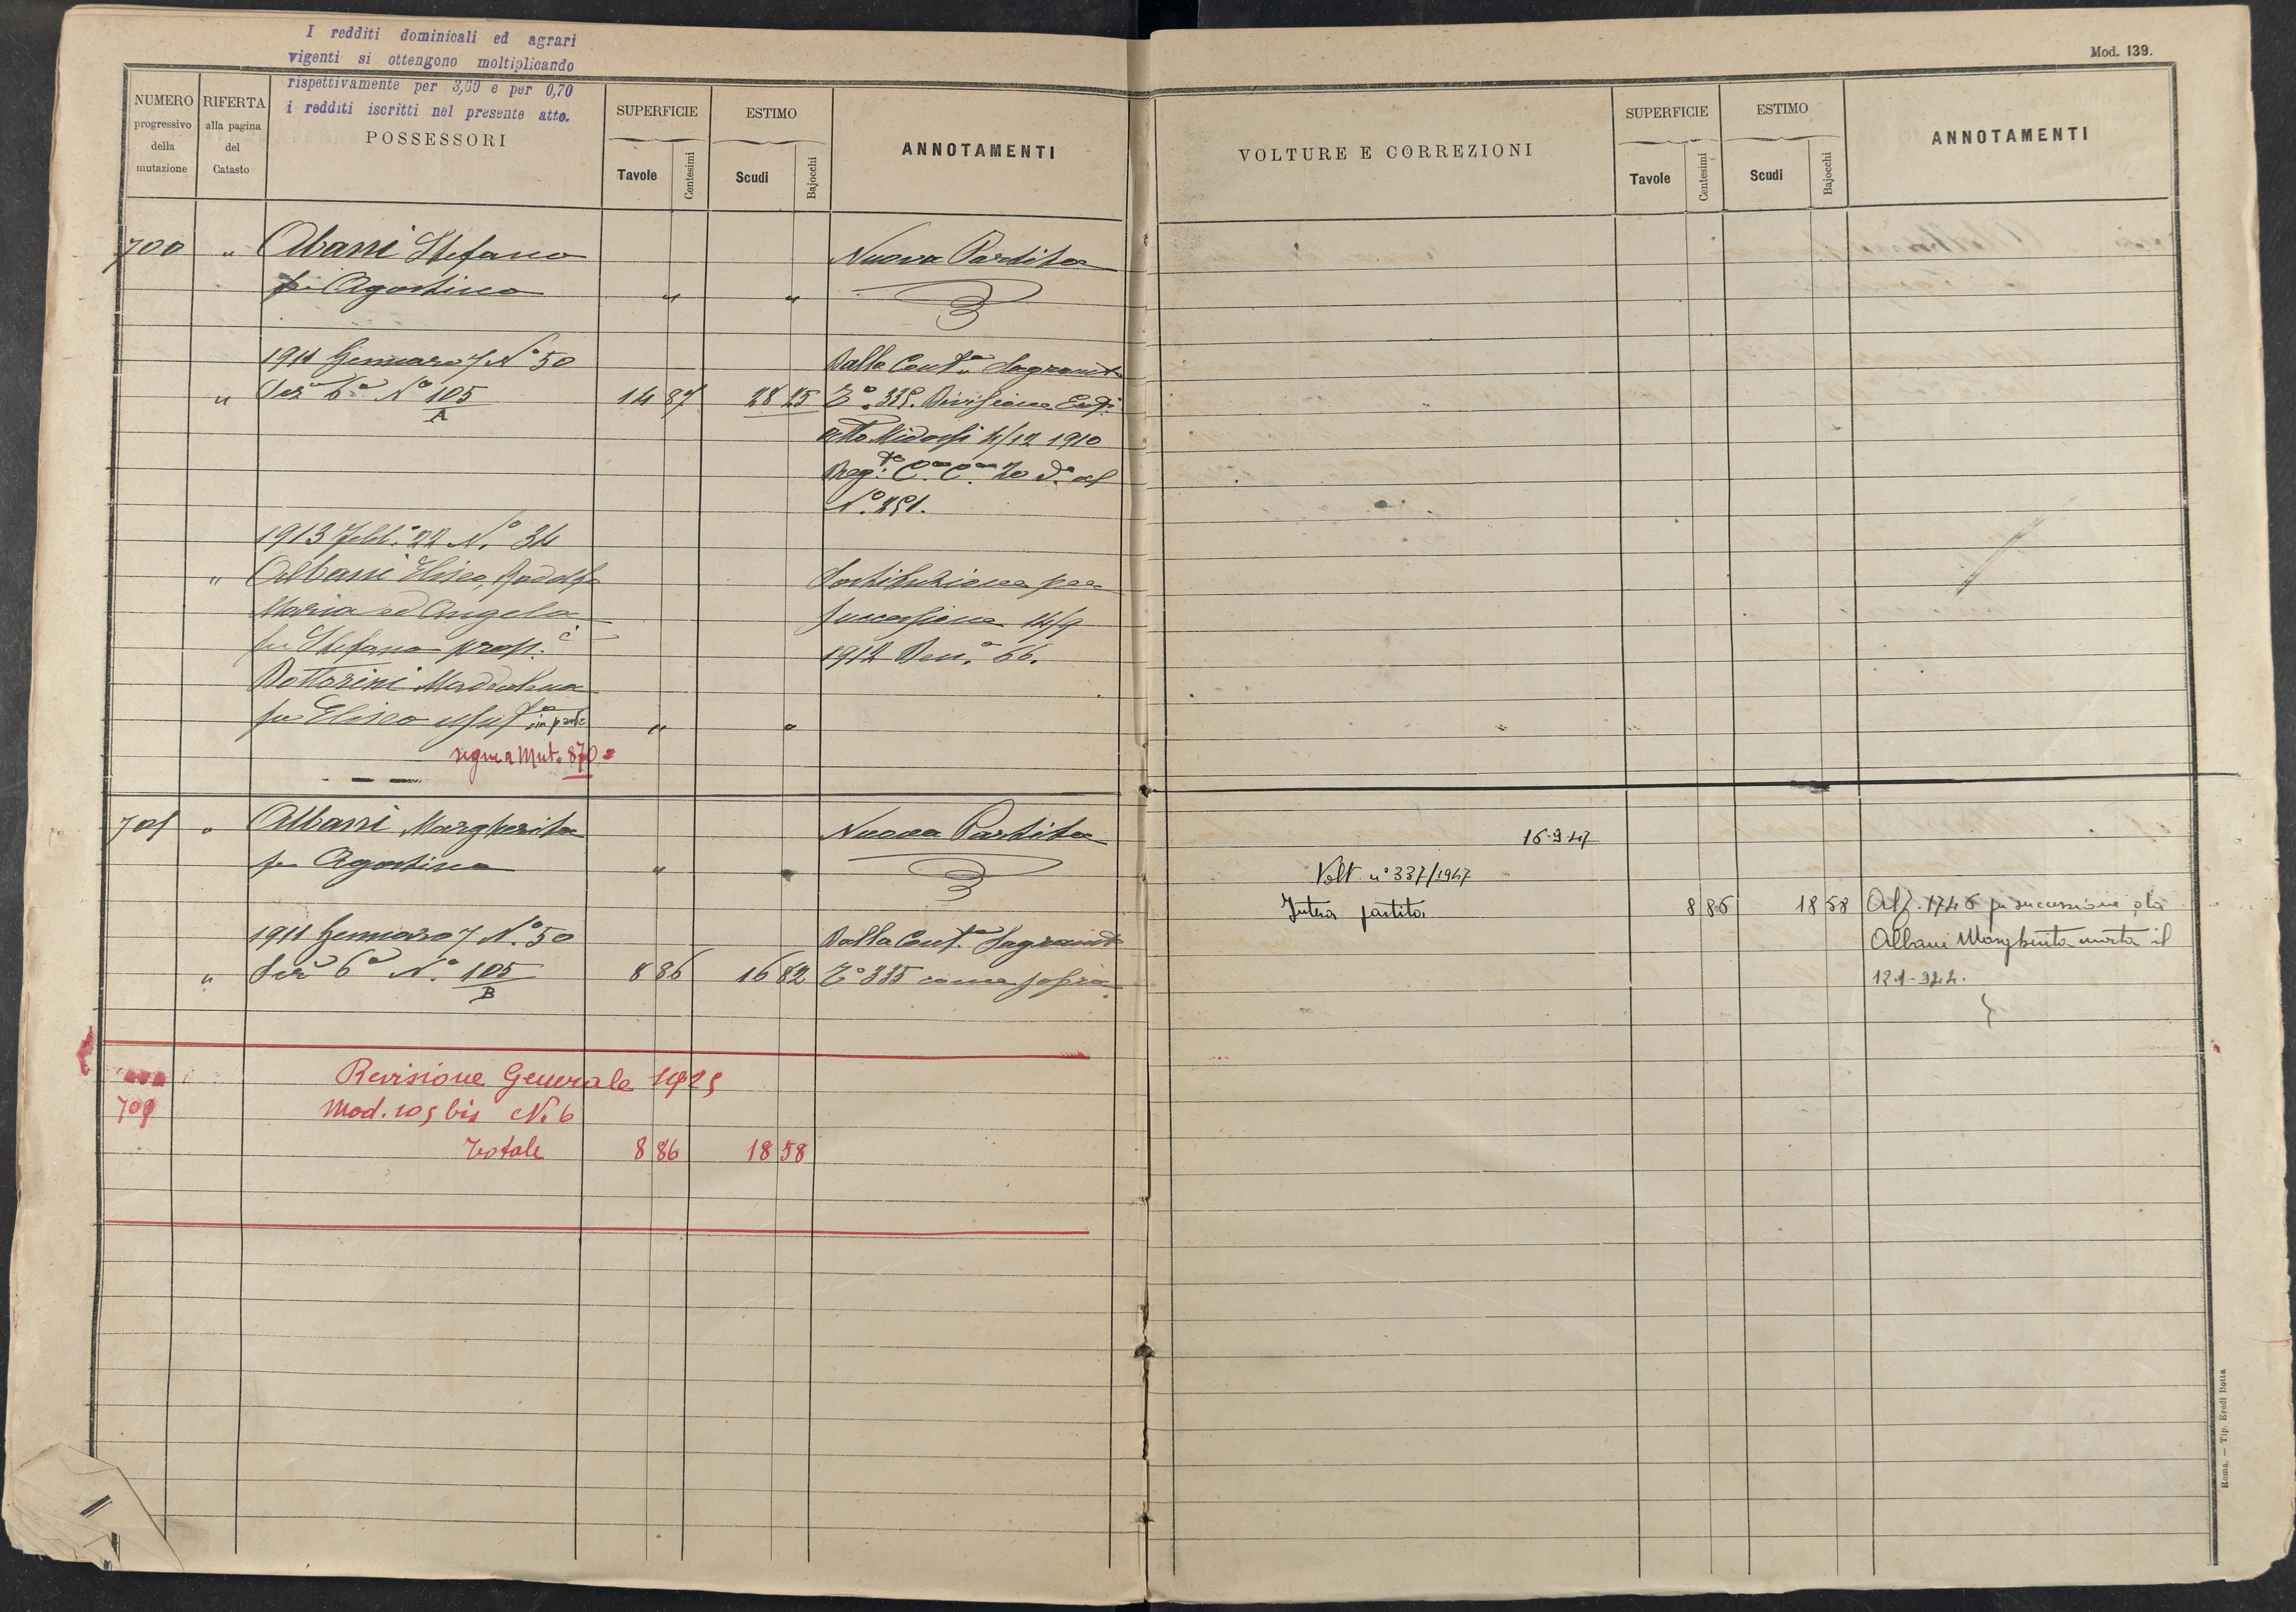 I redditi dominicali ed agrari
vigenti si ottengono moltiplicando
rispettivamente per 3,60 e per 0,70
i redditi iscritti nel presente atto.
NUMERO progressivo della mutazione
RIFERTA alla pagina del Catasto
POSSESSORI
SUPERFICIE
Tavole Centesimi
ESTIMO
Scudi Bajocchi
ANNOTAMENTI
700 " Albani Stefano Nuova Partita
fu Agostino " "
1911 Gennaro 7 N° 50 Dalla Cont.
" N° 105 14 87 28 25 Divisione
A
4/12 1910
1913 Febb. 22 N. 34
" Albani Eliseo, Rodolfo Sostituzione per
Maria ed Angela successione 14/9
fu Stefano prop. 1912 Den. 66.
Dottorini
fu Eliseo in parte " "
segue a Mut. 870
701 " Albani Margherita Nuova Partita
fu Agostino " "
1911 Gennaro 7 N° 50 Dalla Cont.
" N. 105 8 86 16 82 335 come sopra
B
Revisione Generale 1925
701 Mod. 105 bis N. 6
Totale 8 86 18 58
Mod. 139.
VOLTURE E CORREZIONI
SUPERFICIE
Tavole Centesimi
ESTIMO
Scudi Bajocchi
ANNOTAMENTI
16-9-47
Volt. n° 337/1947
Intera partita 8 86 18 58 1746 per successione da
Albani Margherita morta il
12-1-944.
Roma, — Tip. Eredi Botta